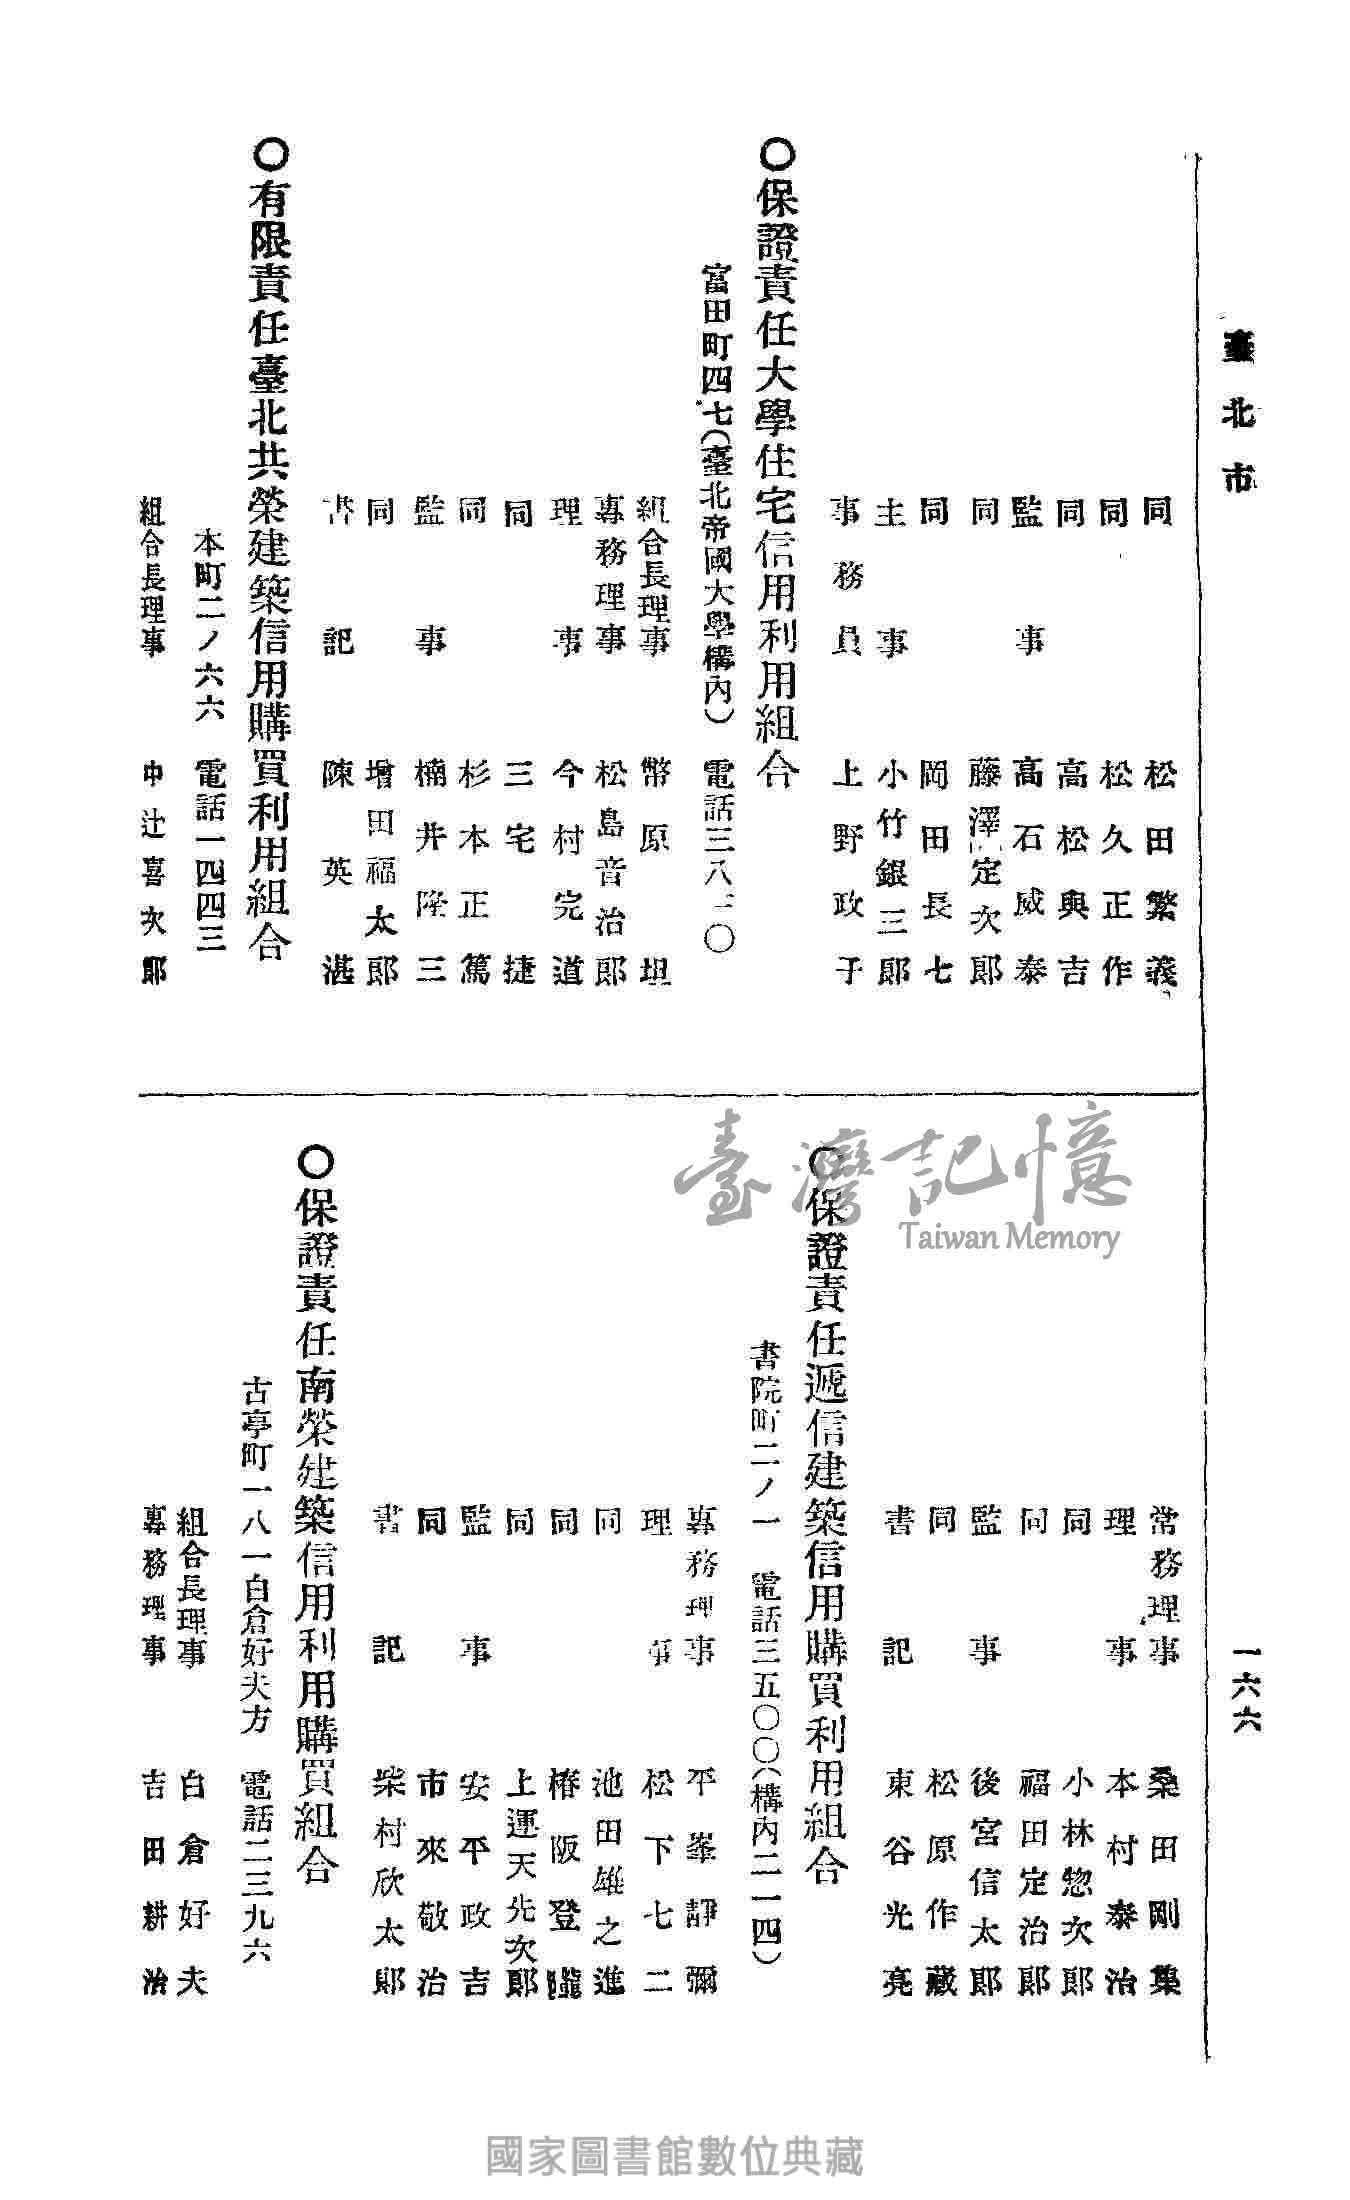 臺北市
一六六
同 松田繁義
同 松久正作
同 高松與吉
監事 高石威泰
同 藤澤定次郎
同 岡田長七
主事 小竹銀三郎
事務員 上野政子
○保證責任大學住宅信用利用組合
富田町四七(臺北帝國大學構內) 電話三八 〇
組合長理事 幣原坦
專務理事 松島音治郎
理事 今村完道
同 三宅捷
同 杉本正篤
監事 楠井隆三
同 增田福太郎
書記 陳英湛
○有限責任臺北共榮建築信用購買利用組合
本町二ノ六六 電話一四四三
組合長理事 中辻喜次郎
常務理事 桑田剛集
理事 本村泰治
同 小林惣次郎
同 福田定治郎
監事 後宮信太郎
同 松原作藏
書記 東谷光亮
○保證責任遞信建築信用購買利用組合
書院町二ノ一 電話三五〇〇(構內二一四)
專務理事 平峯靜彌
理事 松下七二
同 池田雄之進
同 椿阪登
同 上運天先次郎
監事 安平政吉
同 市來敬治
書記 柴村欣太郎
○保證責任南榮建築信用利用購買組合
古亭町一八一白倉好夫方 電話二三九六
組合長理事 白倉好夫
專務理事 吉田耕治
臺灣記憶
Taiwan Memory
國家圖書館數位典藏